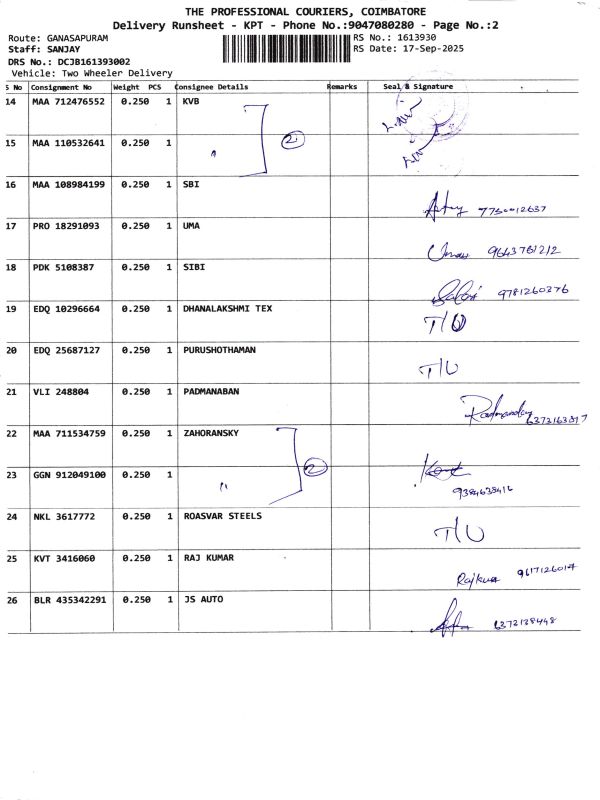 THE PROFESSIONAL COURIERS, COIMBATORE
Delivery Runsheet - KPT - Phone No.:9047080280 - Page No.:2
Route: GANASAPURAM RS No.: 1613930
Staff: SANJAY RS Date: 17-Sep-2025
DRS No.: DCJB161393002
Vehicle: Two Wheeler Delivery
S No Consignment No Weight PCS Consignee Details Remarks Seal & Signature
14 MAA 712476552 0.250 1 KVB
15 MAA 110532641 0.250 1 " 2
16 MAA 108984199 0.250 1 SBI
17 PRO 18291093 0.250 1 UMA
Uma 9643781212
18 PDK 5108387 0.250 1 SIBI
9781260376
19 EDQ 10296664 0.250 1 DHANALAKSHMI TEX T/U
20 EDQ 25687127 0.250 1 PURUSHOTHAMAN
T/U
21 VLI 248804 0.250 1 PADMANABAN
22 MAA 711534759 0.250 1 ZAHORANSKY
23 GGN 912049100 0.250 1 " 2
24 NKL 3617772 0.250 1 ROASVAR STEELS
T/U
25 KVT 3416060 0.250 1 RAJ KUMAR
Rajkumar 9617126014
26 BLR 435342291 0.250 1 JS AUTO
6372138448